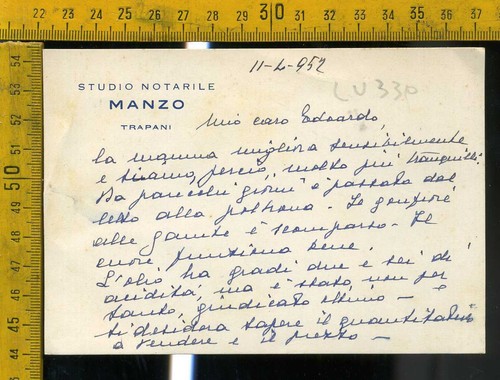 22 23 24 25 26 27 28 29 30 31 32 33 34 35 36 37
54
53
52
51
50
49
48
47
46
45
44
11-2-952
LU330
STUDIO NOTARILE
MANZO
TRAPANI
Mio caro Edoardo,
la mamma migliora sensibilmente
e stiamo, perciò, molto più tranquilli.
Da parecchi giorni è passata dal
letto alla poltrona. Le gonfiore
alle gambe è scomparso. Il
cuore funziona bene.
L'olio ha gradi due e sei di
acidità, ma è stato, non per
tanto, giudicato ottimo - e
si desidera sapere il quantitativo
a vendere e il prezzo -